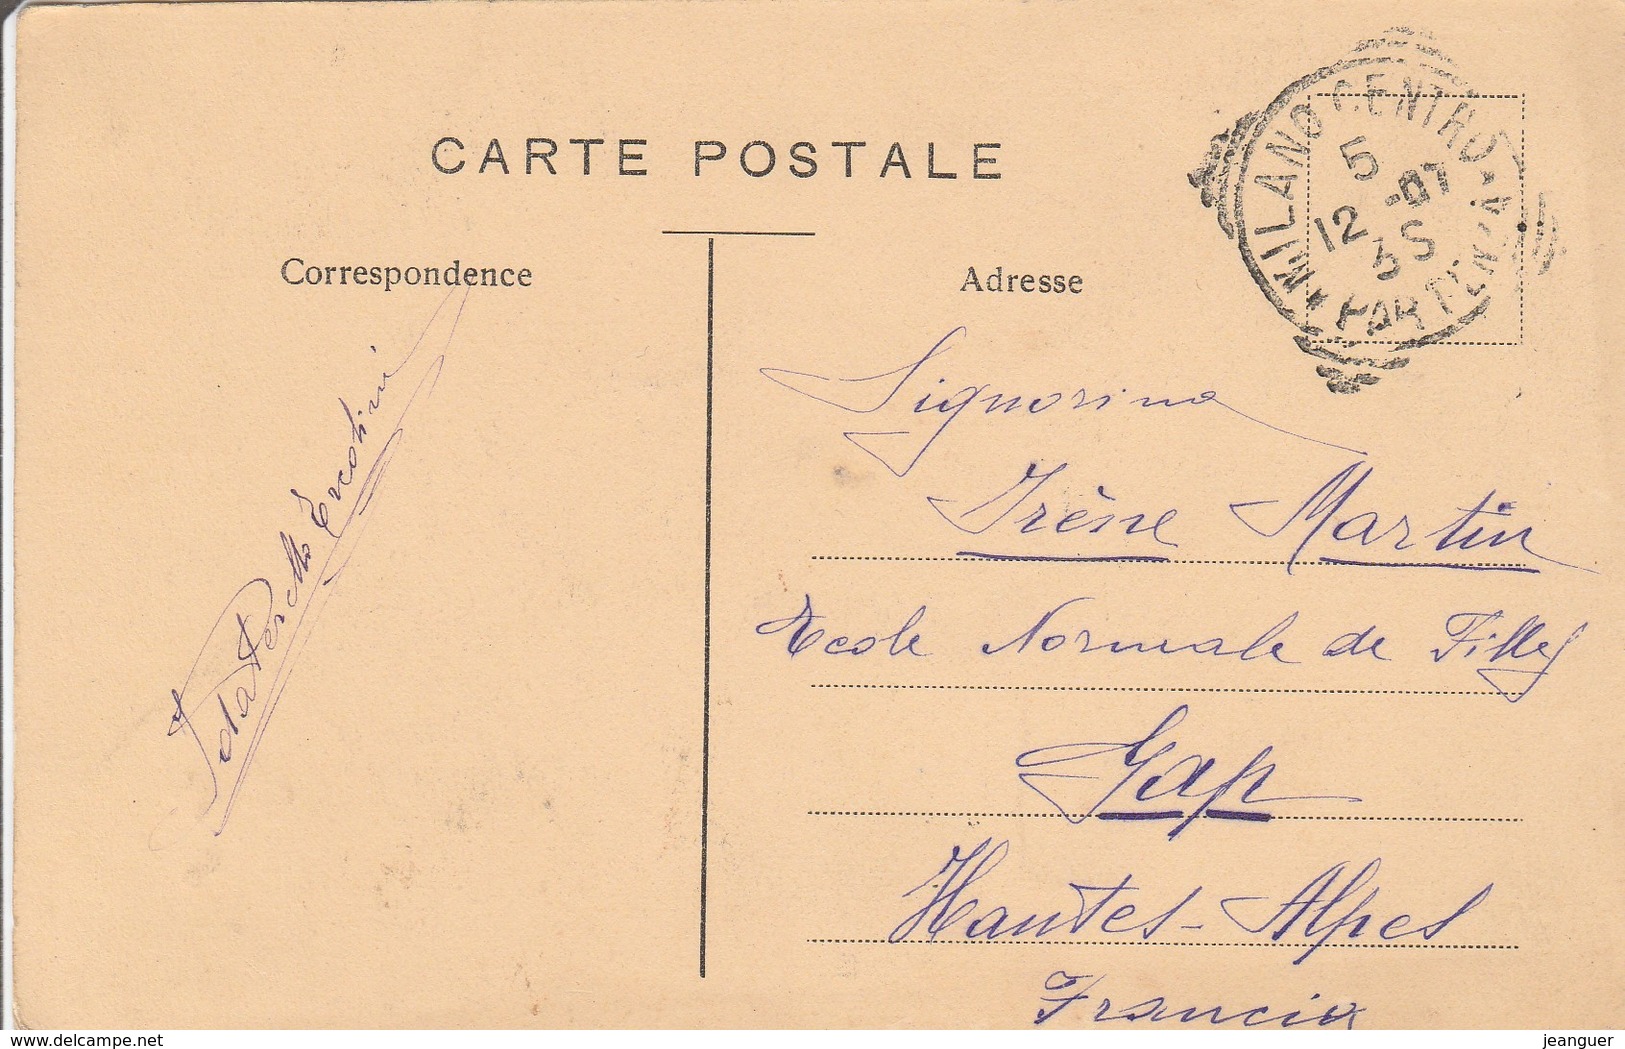 CARTE POSTALE
Correspondence
Adresse
MILANO CENTRO
5
-07
12
3S
Signorina
Irène Martin
Ecole Normale de Filles
Gap
Hautes-Alpes
Francia
Ercolini
delcampe.net
jeanguer